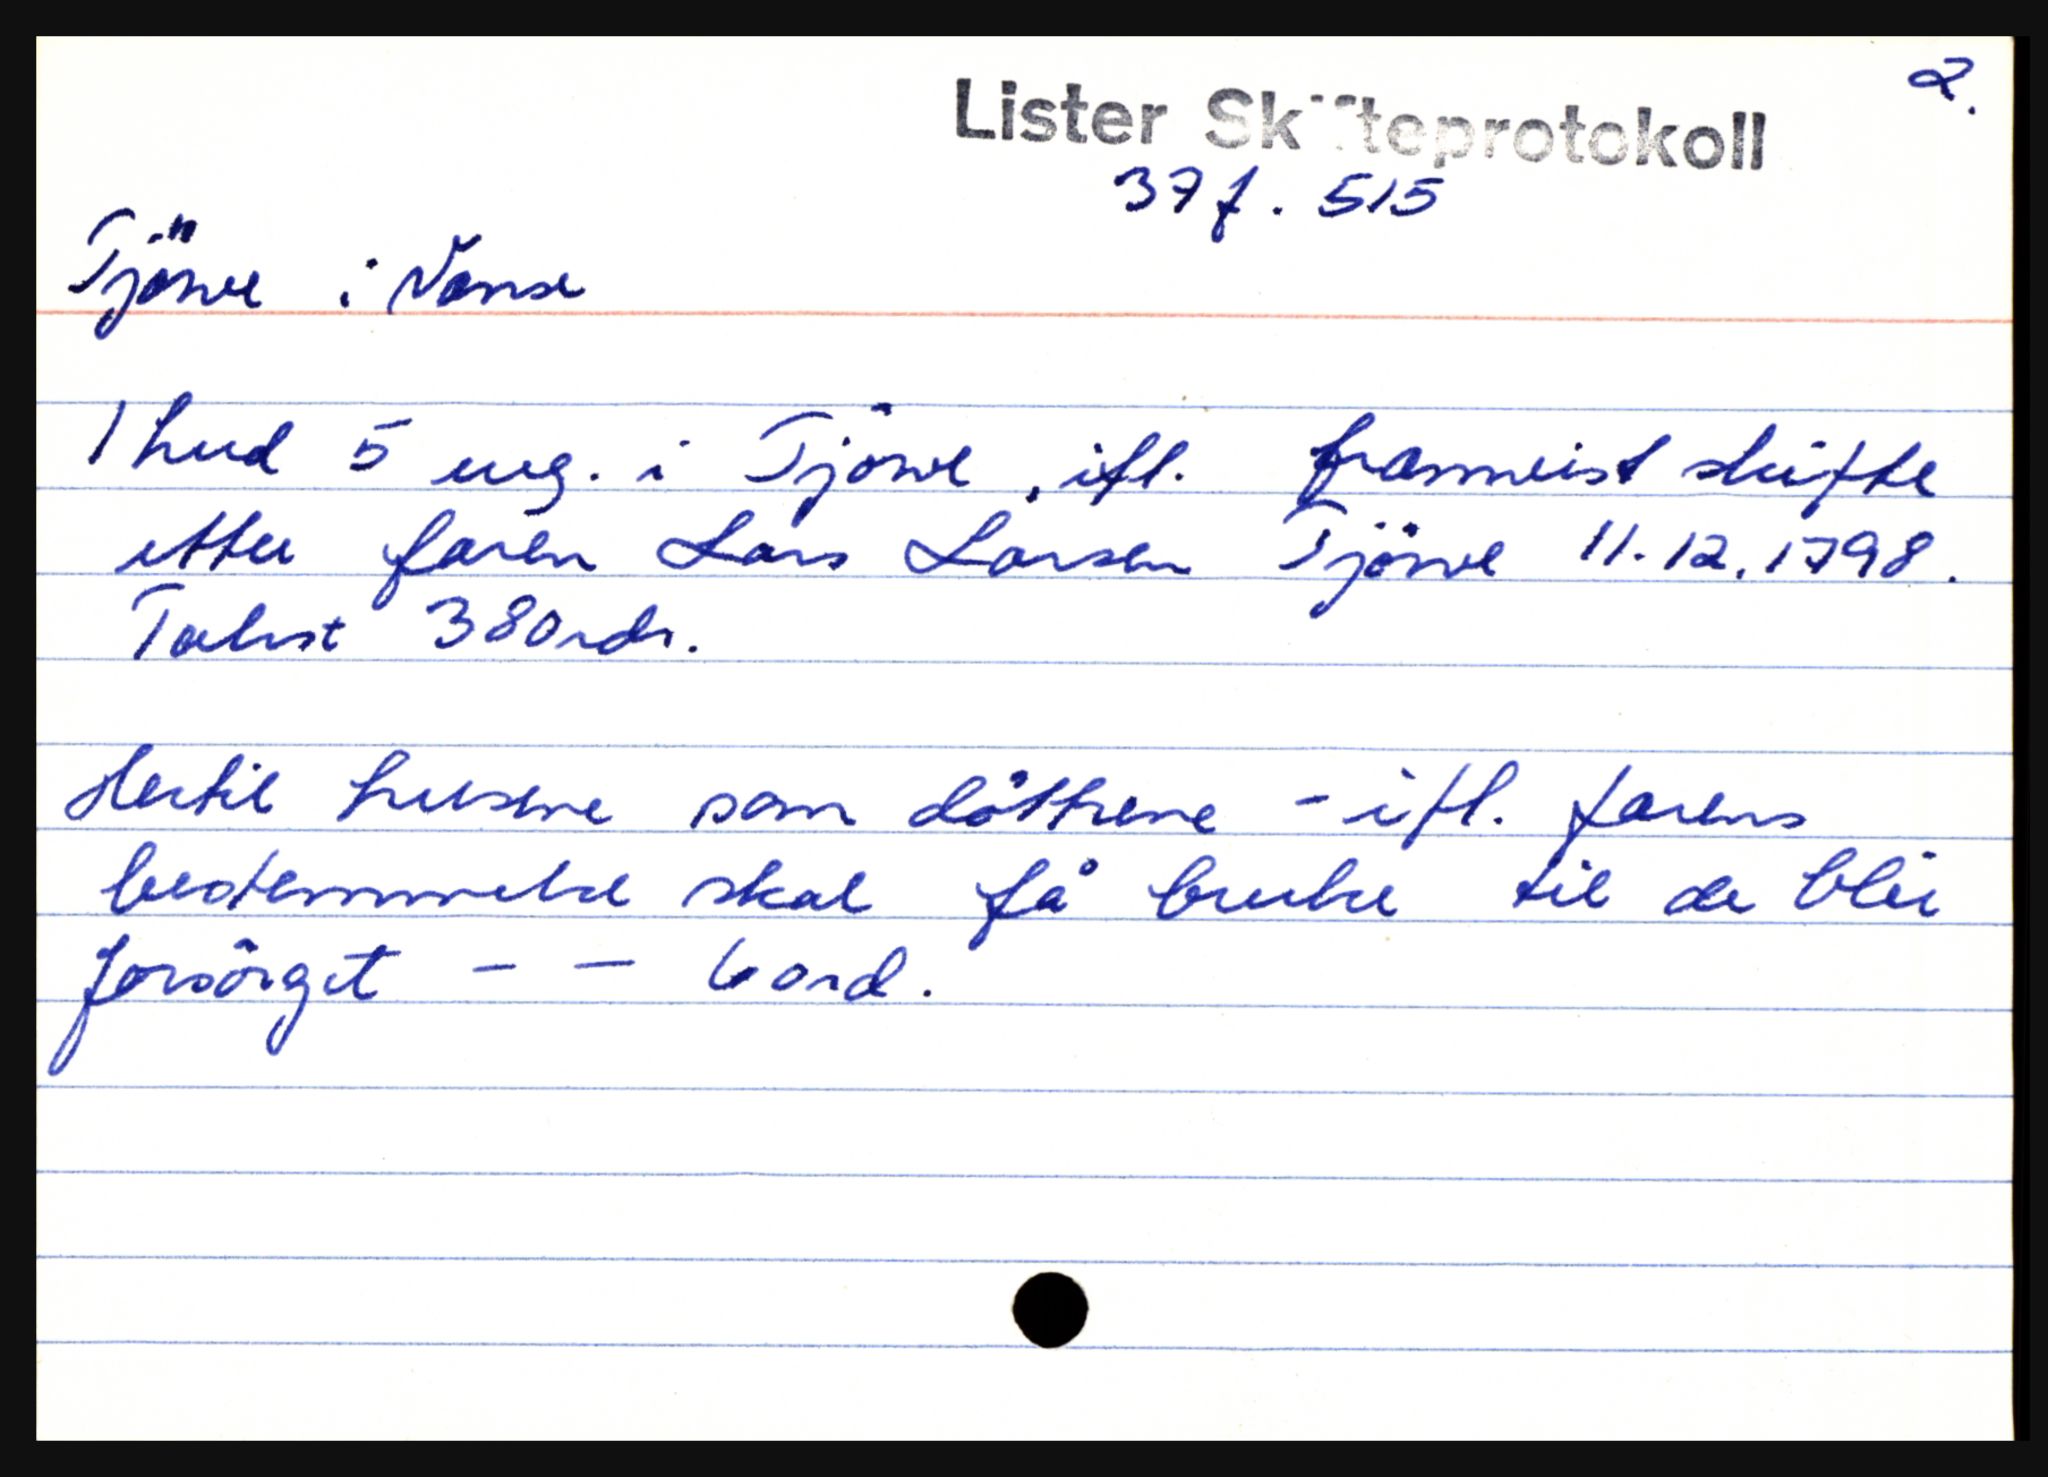 2.
Lister Skifteprotokoll
37 f. 515
Tjörve i Vanse
1 hud 5 eng. i Tjörve, ifl. framvist skifte
etter faren Lars Larsen Tjörve 11.12.1798.
Takst 380 rdr.
Hertil husene som döttrene - ifl. farens
bestemmelse skal få bruke til de blir
forsörget - - 60 rd.